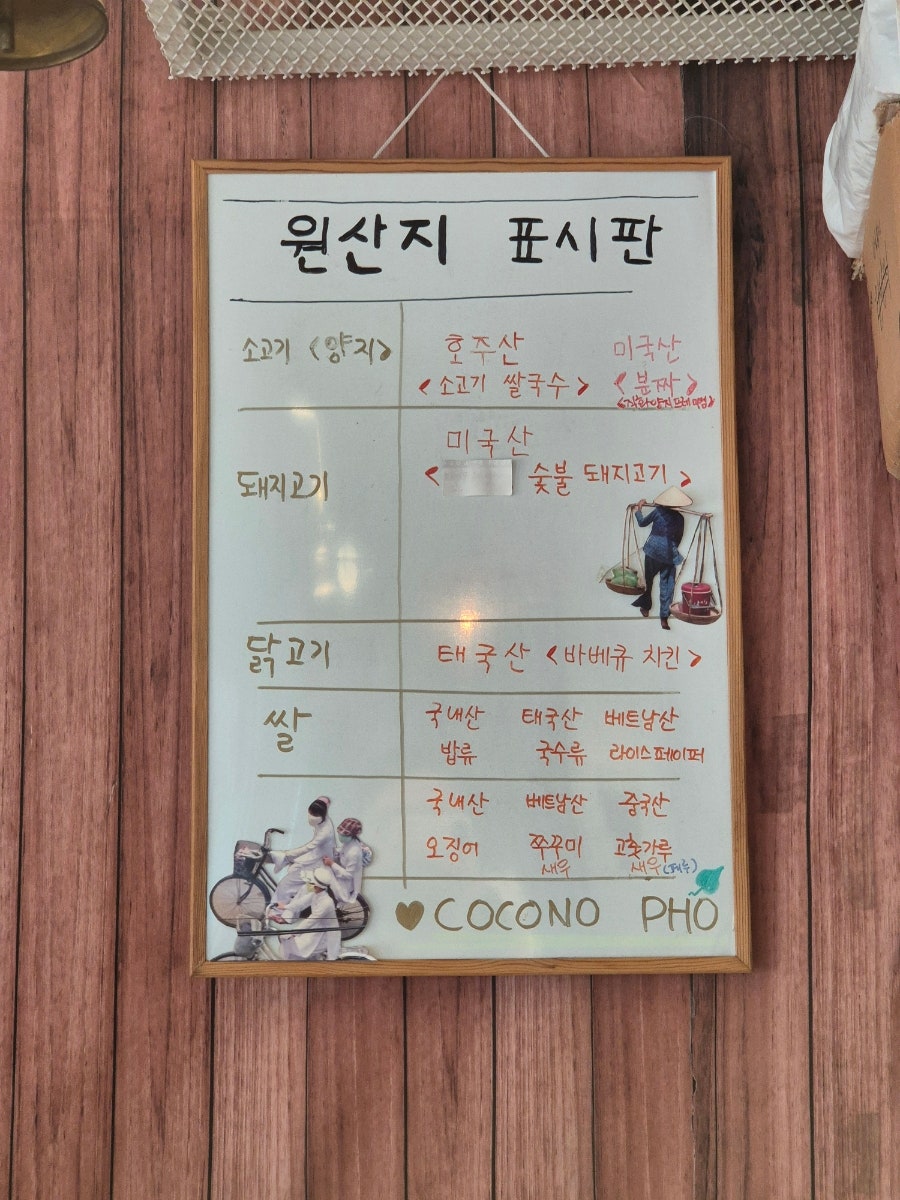 원산지 표시판
소고기 <양지> 호주산 미국산
<소고기 쌀국수> <분짜>
<직화양지프레미엄>
돼지고기 미국산
< 숯불 돼지고기>
닭고기 태국산 <바베큐 치킨>
쌀 국내산 태국산 베트남산
밥류 국수류 라이스페이퍼
국내산 베트남산 중국산
오징어 쭈꾸미 고춧가루
새우 새우
♥COCONO PHO